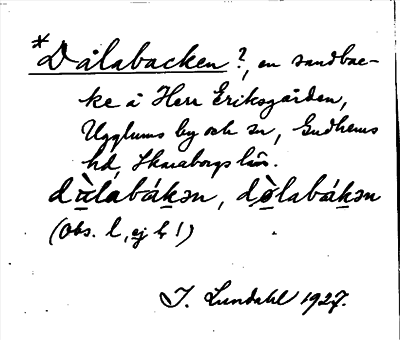 *Dålabacken?, en sandbac-
ke å Herr Eriksgården,
Ugglums by och sn, Gudhems
hd, Skaraborgs län.
dɯ̀labákən, dòlabákən
(Obs. l, ej ɫ!)
I. Lundahl 1927.